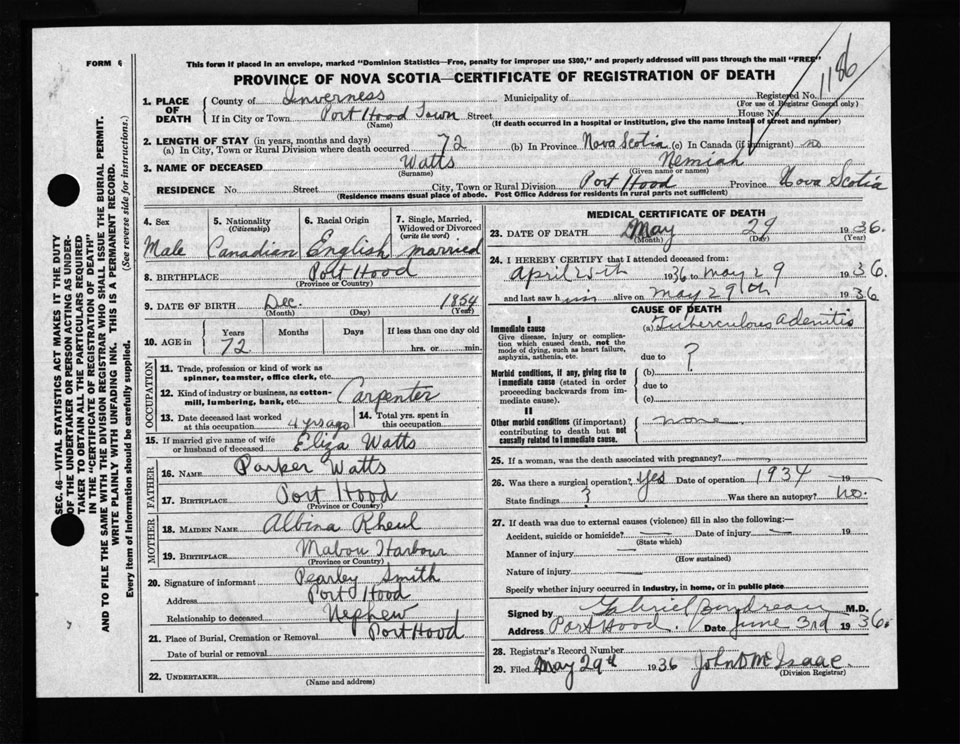 FORM 4
This form if placed in an envelope, marked "Dominion Statistics—Free, penalty for improper use $300," and properly addressed will pass through the mail "FREE"
PROVINCE OF NOVA SCOTIA—CERTIFICATE OF REGISTRATION OF DEATH
1186
1. PLACE OF DEATH County of Inverness Municipality of Registered No. (For use of Registrar General only)
If in City or Town Port Hood Town Street House No.
(Name) (If death occurred in a hospital or institution, give the name instead of street and number)
2. LENGTH OF STAY (in years, months and days)
(a) In City, Town or Rural Division where death occurred 72 (b) In Province Nova Scotia (c) In Canada (if immigrant) no
3. NAME OF DECEASED Watts Nemiah
(Surname) (Given name or names)
RESIDENCE No. Street City, Town or Rural Division Port Hood Province Nova Scotia
(Residence means usual place of abode. Post Office Address for residents in rural parts not sufficient)
4. Sex 5. Nationality (Citizenship) 6. Racial Origin 7. Single, Married, Widowed or Divorced (write the word)
Male Canadian English married
8. BIRTHPLACE Port Hood
(Province or Country)
9. DATE OF BIRTH Dec. 1864
(Month) (Day) (Year)
10. AGE in Years Months Days If less than one day old
72 hrs. or min.
OCCUPATION
11. Trade, profession or kind of work as spinner, teamster, office clerk, etc.
12. Kind of industry or business, as cotton-mill, lumbering, bank, etc. Carpenter
13. Date deceased last worked at this occupation 4 yrs ago 14. Total yrs. spent in this occupation
15. If married give name of wife or husband of deceased Eliza Watts
FATHER
16. NAME Parker Watts
17. BIRTHPLACE Port Hood
(Province or Country)
MOTHER
18. MAIDEN NAME Albina
19. BIRTHPLACE Mabou Harbour
(Province or Country)
20. Signature of informant Pearley Smith
Address Port Hood
Relationship to deceased Nephew
21. Place of Burial, Cremation or Removal Port Hood
Date of burial or removal
22. UNDERTAKER
(Name and address)
MEDICAL CERTIFICATE OF DEATH
23. DATE OF DEATH May 29 1936.
(Month) (Day) (Year)
24. I HEREBY CERTIFY that I attended deceased from:
April 1936 to May 29 1936.
and last saw him alive on May 29th 1936
CAUSE OF DEATH
I
Immediate cause (a) Tuberculous Adenitis
Give disease, injury or complication which caused death, not the mode of dying, such as heart failure, asphyxia, asthenia, etc.
due to ?
Morbid conditions, if any, giving rise to immediate cause (stated in order proceeding backwards from immediate cause).
(b)
due to
(c)
II
Other morbid conditions (if important) contributing to death but not causally related to immediate cause. none
25. If a woman, was the death associated with pregnancy?
26. Was there a surgical operation? Yes Date of operation 1934 19
State findings ? Was there an autopsy? No.
27. If death was due to external causes (violence) fill in also the following:—
Accident, suicide or homicide? Date of injury 19
(State which)
Manner of injury
(How sustained)
Nature of injury
Specify whether injury occurred in industry, in home, or in public place
Signed by Gabriel Boudreau M.D.
Address Port Hood. Date June 3rd 1936.
28. Registrar's Record Number
29. Filed May 29th 1936 John D McIsaac.
(Division Registrar)
SEC. 46—VITAL STATISTICS ACT MAKES IT THE DUTY
OF THE UNDERTAKER OR PERSON ACTING AS UNDER-
TAKER TO OBTAIN ALL THE PARTICULARS REQUIRED
IN THE "CERTIFICATE OF REGISTRATION OF DEATH"
AND TO FILE THE SAME WITH THE DIVISION REGISTRAR WHO SHALL ISSUE THE BURIAL PERMIT.
WRITE PLAINLY WITH UNFADING INK. THIS IS A PERMANENT RECORD.
Every item of Information should be carefully supplied. (See reverse side for Instructions.)